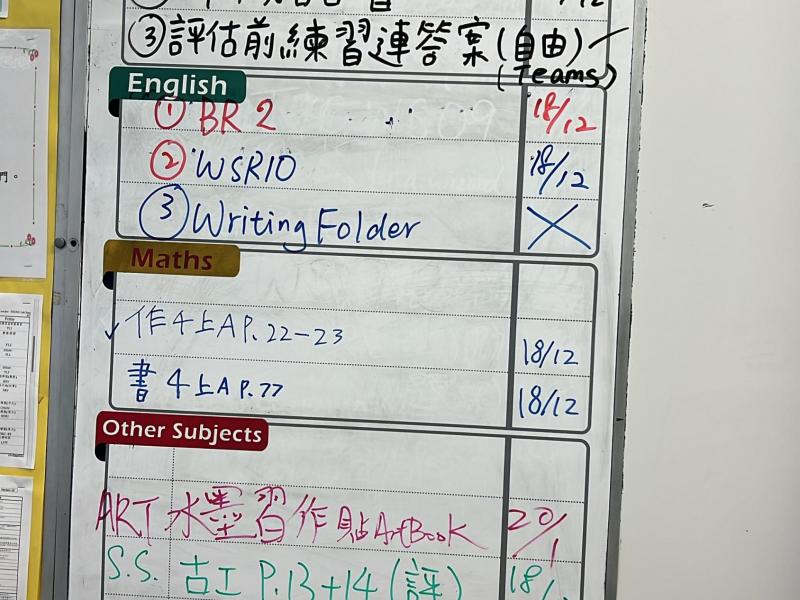 ③評估前練習連答案(自由)
(Teams)
English
① BR 2 18/12
② WSR10 18/12
③ Writing Folder
Maths
作4上A P.22-23 18/12
書4上A P.77 18/12
Other Subjects
ART 水墨習作貼ArtBook 20/1
S.S. 古工 P.13+14 (評) 18/